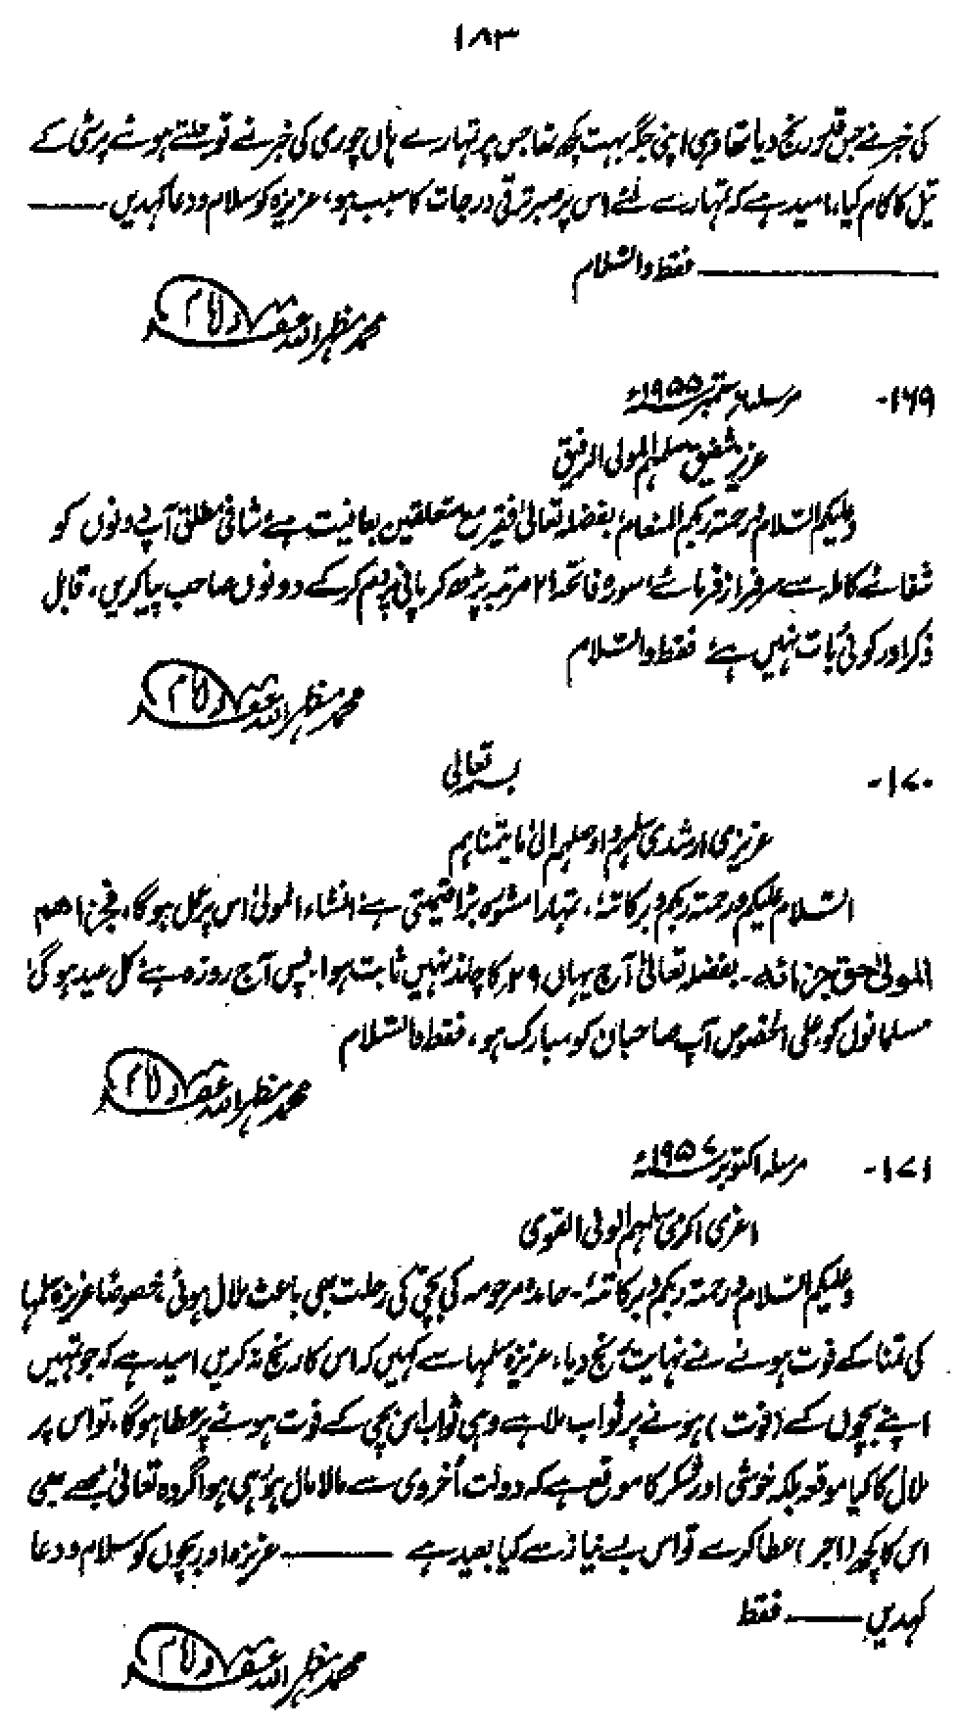 ۱۸۳
کی خبر نے جس قدر رنج دیا تھا وہی اپنی جگہ بہت کچھ تھا جس پر تمہارے ہاں چوری کی خبر نے تو جلتے ہوئے پر مٹی کے
تیل کا کام کیا، امید ہے کہ تمہارے لئے اس پر صبر ترقی درجات کا سبب ہو، عزیزہ کو سلام و دعا کہدیں ——
—————— فقط والسّلام
محمد مظہر اللہ غفرلہ ولامام
۱۶۹- مرسلہ ۶ ستمبر ۱۹۵۵ء
عزیز شفیق سلمہم المولی الرفیق
وعلیکم السّلام ورحمتہ ربکم المنعام، بفضلہ تعالیٰ فقیر مع متعلقین بعافیت ہے، شافی مطلق آپ دونوں کو
شفائے کاملہ سے سرفراز فرمائے، سورۂ فاتحہ ۲۱ مرتبہ پڑھ کر پانی پر دم کر کے دونوں صاحب پیا کریں، قابل
ذکر اور کوئی بات نہیں ہے، فقط والسّلام
محمد مظہر اللہ غفرلہ ولامام
۱۷۰- بسمہ تعالیٰ
عزیزی ارشدی سلمہم و اوصلہم الیٰ ما یتمناہم
السّلام علیکم ورحمتہ ربکم و برکاتہٗ، تمہارا مشورہ بڑا قیمتی ہے، انشاء المولیٰ اس پر عمل ہوگا، فجزاھم
المولیٰ حق جزائہ - بفضلہ تعالیٰ آج یہاں ۲۹ کا چاند نہیں ثابت ہوا، پس آج روزہ ہے، کل عید ہوگی،
مسلمانوں کو علی الخصوص آپ صاحبان کو مبارک ہو، فقط والسّلام
محمد مظہر اللہ غفرلہ ولامام
۱۷۱- مرسلہ اکتوبر ۱۹۵۷ء
اعزی اکرمی سلمہم الولی القوی
وعلیکم السّلام ورحمتہ ربکم و برکاتہٗ - حامدہ مرحومہ کی بچی کی رحلت بھی باعث ملال ہوئی، خصوصاً عزیزہ سلمہا
کی تمنا کے فوت ہونے نے نہایت رنج دیا، عزیزہ سلمہا سے کہیں کہ اس کا رنج نہ کریں امید ہے کہ جو تمہیں
اپنے بچوں کے (فوت) ہونے پر ثواب ملا ہے وہی ثواب اس بچی کے فوت ہونے پر عطا ہوگا، تو اس پر
ملال کا کیا موقعہ بلکہ خوشی اور شکر کا موقع ہے کہ دولت اُخروی سے مالا مال ہو رہی ہو اگر وہ تعالیٰ مجھے بھی
اس کا کچھ (اجر) عطا کرے تو اس بے نیاز سے کیا بعید ہے —— عزیزہ اور بچوں کو سلام و دعا
کہدیں —— فقط
محمد مظہر اللہ غفرلہ ولامام